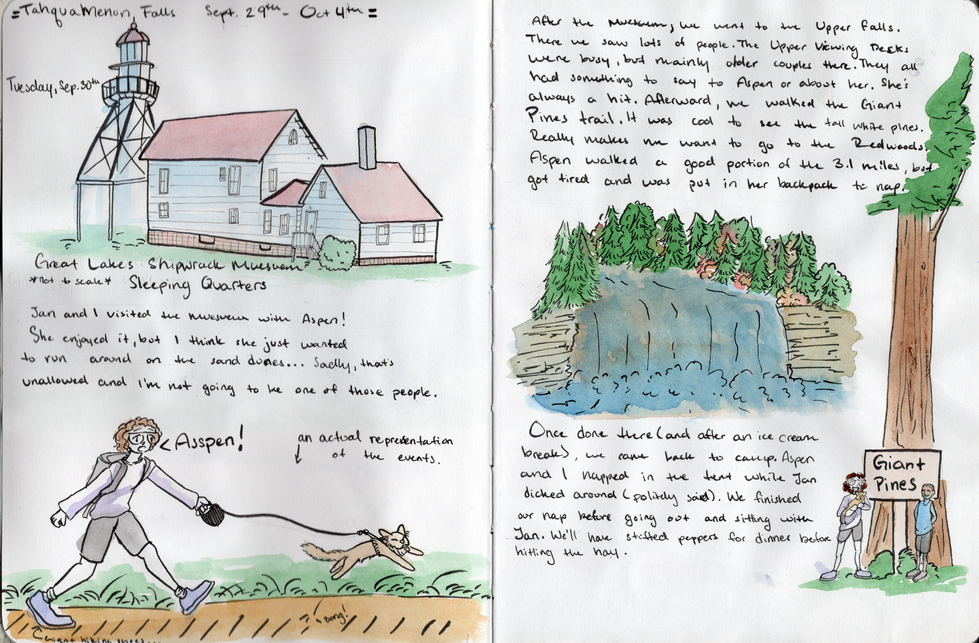 =Tahquamenon Falls Sept. 29th - Oct 4th =
Tuesday, Sep. 30th
Great Lakes Shipwrack Museuem
*not to scale* Sleeping Quarters
Jan and I visited the museuem with Aspen!
She enjoyed it, but I think she just wanted
to run around on the sand dunes... Sadly, that's
unallowed and I'm not going to be one of those people.
Asspen!
an actual representation
of the events.
boing!
giant hiking shoes
After the Museuem, we went to the Upper Falls.
There we saw lots of people. The Upper Viewing Decks
were busy, but mainly older couples there. They all
had something to say to Aspen or about her. She's
always a hit. Afterward, we walked the Giant
Pines trail. It was cool to see the tall white pines.
Really makes me want to go to the Redwoods.
Aspen walked a good portion of the 3.1 miles, but
got tired and was put in her backpack to nap.
Once done there (and after an ice cream
break), we came back to camp. Aspen
and I napped in the tent while Jan
dicked around (politely said). We finished
our nap before going out and sitting with
Jan. We'll have stuffed peppers for dinner before
hitting the hay.
Giant
Pines